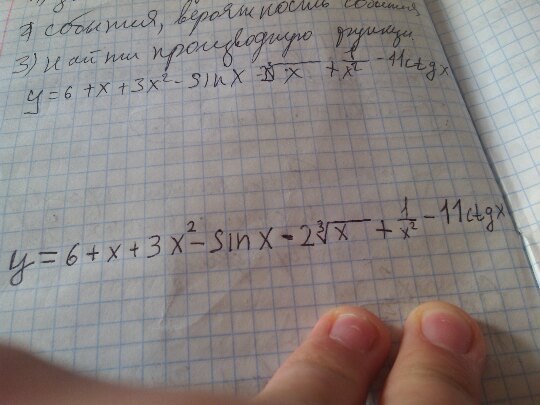 события, вероятность события
3) Найти производную функции
y = 6 + x + 3x² - sin x - 2∛x + 1/x² - 11ctgx
y = 6 + x + 3x² - sin x - 2∛x + 1/x² - 11ctgx